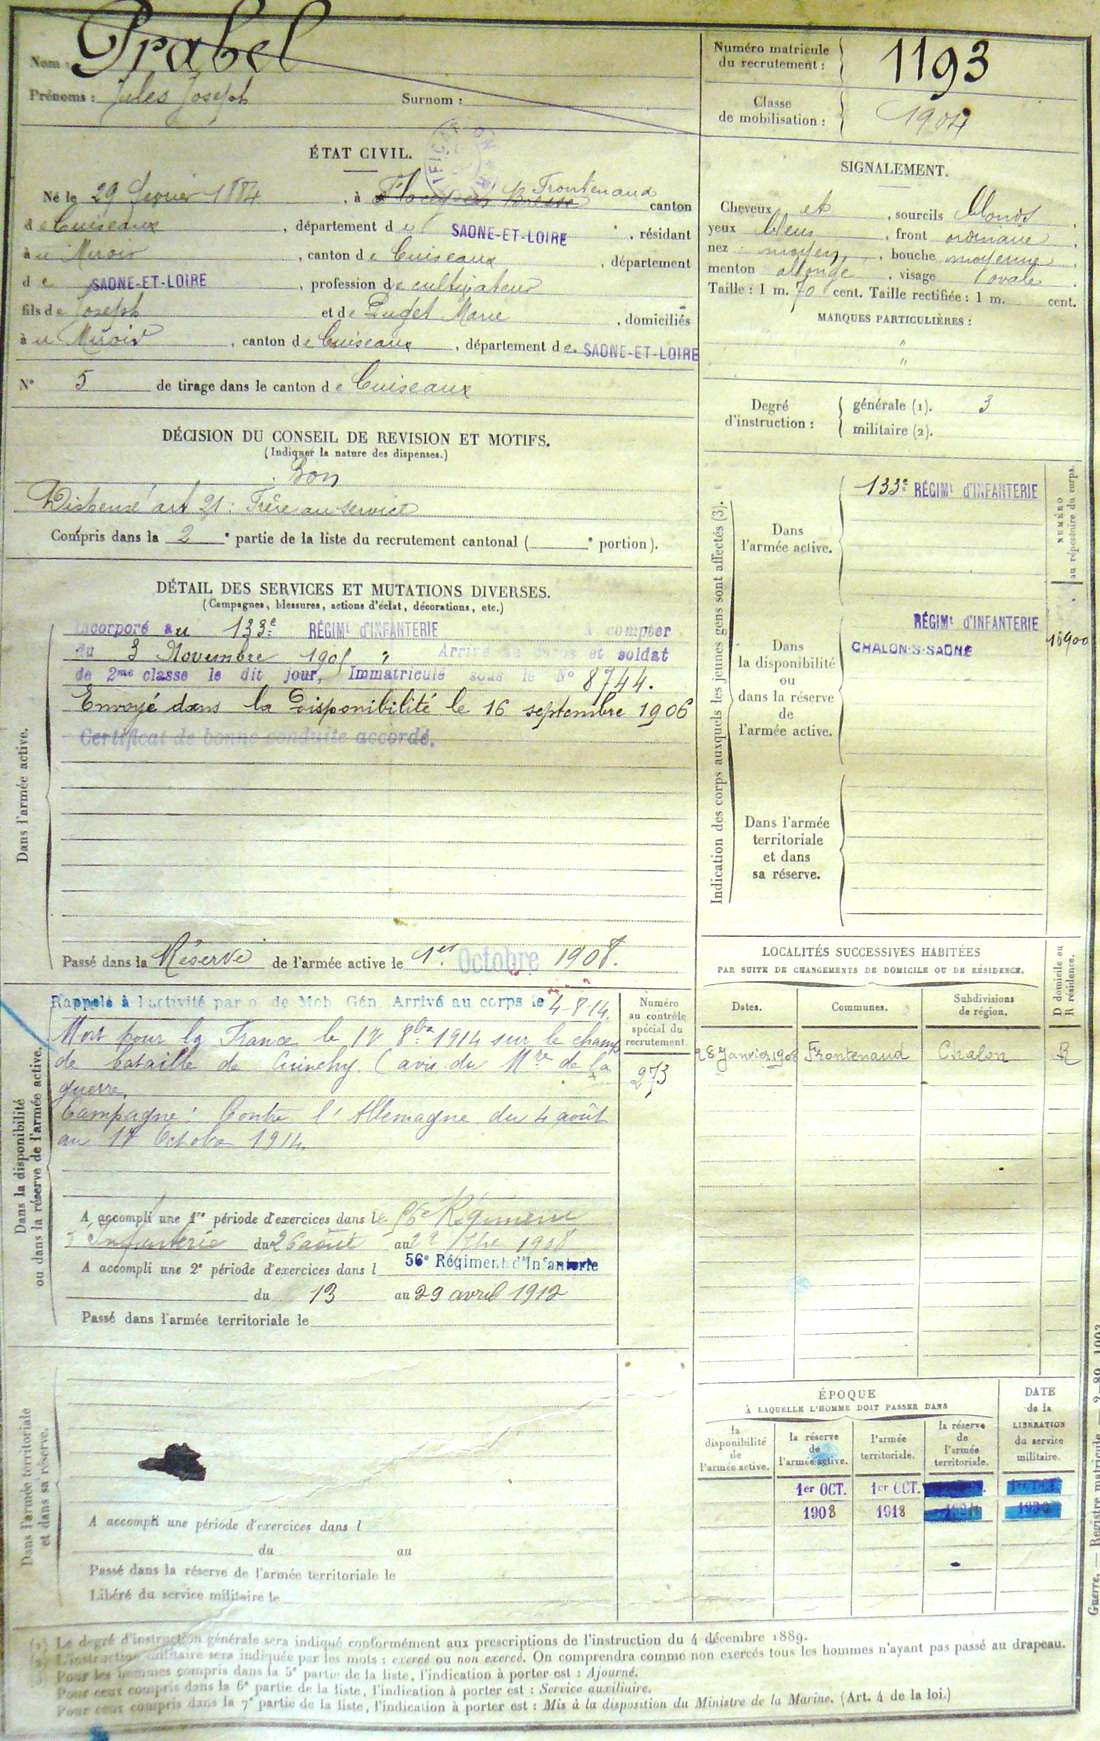 Nom : Prabel
Prénoms : Jules Joseph Surnom :
Numéro matricule du recrutement : 1193
Classe de mobilisation : 1904
ÉTAT CIVIL.
Né le 29 février 1884, à Frontenaud canton
de Cuiseaux, département de SAONE-ET-LOIRE, résidant
au Miroir, canton de Cuiseaux, département
de SAONE-ET-LOIRE, profession de cultivateur
fils de Joseph et de Puget Marie, domiciliés
au Miroir, canton de Cuiseaux, département de SAONE-ET-LOIRE
N° 5 de tirage dans le canton de Cuiseaux
SIGNALEMENT.
Cheveux et, sourcils blonds,
yeux bleus, front ordinaire,
nez moyen, bouche moyenne,
menton allongé, visage ovale.
Taille : 1 m. 70 cent. Taille rectifiée : 1 m. cent.
MARQUES PARTICULIÈRES :
"
"
Degré d'instruction : générale (1). 3
militaire (2).
DÉCISION DU CONSEIL DE REVISION ET MOTIFS.
(Indiquer la nature des dispenses.)
Bon
Dispensé art 21 : Frère au service
Compris dans la 2e partie de la liste du recrutement cantonal ( e portion).
DÉTAIL DES SERVICES ET MUTATIONS DIVERSES.
(Campagnes, blessures, actions d'éclat, décorations, etc.)
Dans l'armée active.
Incorporé au 133e RÉGIMt D'INFANTERIE à compter
du 3 Novembre 1905 " Arrivé au corps et soldat
de 2me classe le dit jour, Immatriculé sous le N° 8744.
Envoyé dans la Disponibilité le 16 septembre 1906
Certificat de bonne conduite accordé.
Passé dans la Réserve de l'armée active le 1er Octobre 1908.
Indication des corps auxquels les jeunes gens sont affectés (3).
NUMÉRO au répertoire du corps.
Dans l'armée active.
133e RÉGIMt D'INFANTERIE
Dans la disponibilité ou dans la réserve de l'armée active.
RÉGIMt D'INFANTERIE
CHALON-S-SAONE
Dans l'armée territoriale et dans sa réserve.
Dans la disponibilité ou dans la réserve de l'armée active.
Rappelé à l'activité par o. de Mob. Gén. Arrivé au corps le 4-8-14.
Mort pour la France le 17 8bre 1914 sur le champ
de bataille de Cuinchy (avis du Mre de la
guerre.
Campagne : Contre l'Allemagne du 4 août
au 17 Octobre 1914.
Numéro au contrôle spécial du recrutement.
273
A accompli une 1re période d'exercices dans le 56e Régiment
d'Infanterie du 26 août au 1908
A accompli une 2e période d'exercices dans l 56e Régiment d'Infanterie
du 13 au 29 avril 1912
Passé dans l'armée territoriale le
LOCALITÉS SUCCESSIVES HABITÉES
PAR SUITE DE CHANGEMENTS DE DOMICILE OU DE RÉSIDENCE.
Dates. Communes. Subdivisions de région. D domicile ou R résidence.
28 Janvier 1908 Frontenaud Chalon R
Dans l'armée territoriale et dans sa réserve.
A accompli une période d'exercices dans l
du au
Passé dans la réserve de l'armée territoriale le
Libéré du service militaire le
ÉPOQUE
À LAQUELLE L'HOMME DOIT PASSER DANS
la disponibilité de l'armée active. la réserve de l'armée active. l'armée territoriale. la réserve de l'armée territoriale.
DATE de la LIBÉRATION du service militaire.
1er OCT. 1er OCT.
1908 1918
(1) Le degré d'instruction générale sera indiqué conformément aux prescriptions de l'instruction du 4 décembre 1889.
(2) L'instruction militaire sera indiquée par les mots : exercé ou non exercé. On comprendra comme non exercés tous les hommes n'ayant pas passé au drapeau.
(3) Pour les hommes compris dans la 5e partie de la liste, l'indication à porter est : Ajourné.
Pour ceux compris dans la 6e partie de la liste, l'indication à porter est : Service auxiliaire.
Pour ceux compris dans la 7e partie de la liste, l'indication à porter est : Mis à la disposition du Ministre de la Marine. (Art. 4 de la loi.)
Guerre. — Registre matricule